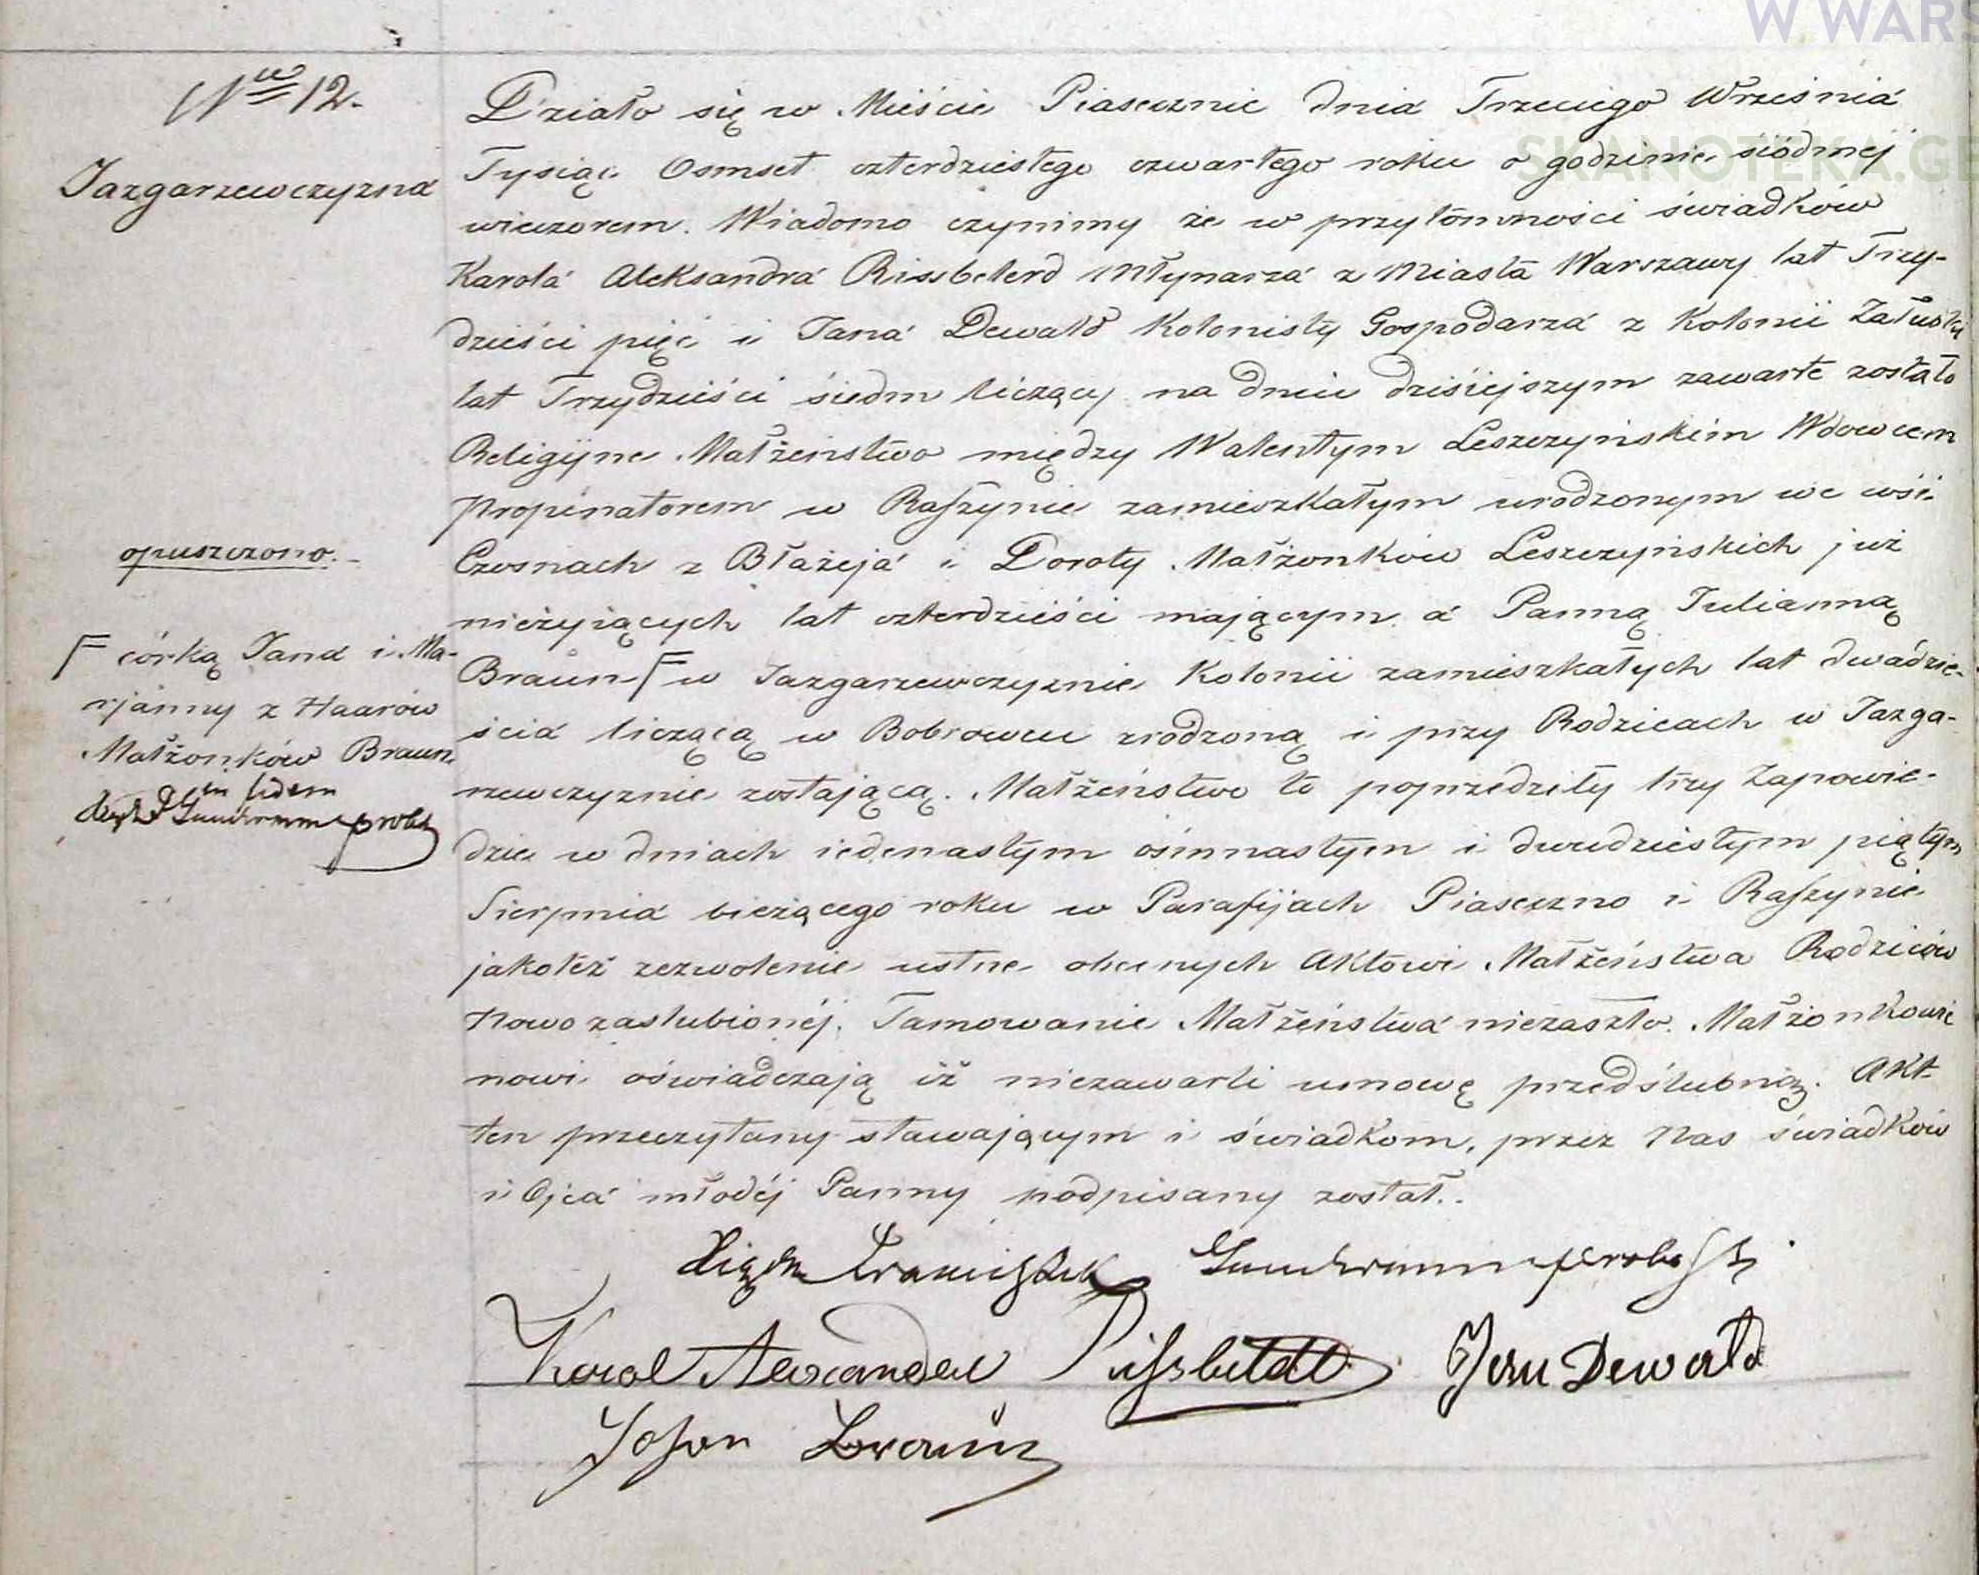 W WARS
SKANOTEKA.GE
Nro 12.
Jazgarzewczyzna
Działo się w Mieście Piasecznie dnia Trzeciego Wrześniá
Tysiąc Osmset czterdziestego czwartego roku o godzinie siódmej
wieczorem. Wiadomo czynimy że w przytomności świadków
Karola Aleksandra Rissbeterd Młynarza z Miasta Warszawy lat Trzy-
dzieści pięć i Jana Dewald Kolonisty Gospodarza z Kolonii Załuski
lat Trzydzieści siedm liczący na dniu dzisiejszym zawarte zostało
Religijne Małżeństwo między Walentym Leszczyńskim Wdowcem
Propinatorem w Raszynie zamieszkałym urodzonym we wsi
Czosnach z Błażeja i Doroty Małżonków Leszczyńskich już
nieżyiących lat czterdzieści mającym a Panną Julianną
Braun F w Jazgarzewczyznie Kolonii zamieszkałych lat dwadzie-
ścia liczącą w Bobrowcu zrodzoną i przy Rodzicach w Jazga-
rzewczyznie zostającą. Małżeństwo to poprzedziły trzy Zapowie-
dzie w dniach iedenastym ośmnastym i dwudziestym piątym
Sierpnia bieżącego roku w Parafijach Piaseczno i Raszynie
jakoteż zezwolenie ustne obecnych Aktowi Małżeństwa Rodziców
Nowozaslubionéj. Tamowanie Małżeństwa niezaszło. Małżonkowie
nowi oświadczają iż niezawarli umowę przedślubną. Akt
ten przeczytany stawającym i świadkom, przez Nas świadków
i Ojca młodéj Panny podpisany został.
opuszczono.
F córką Jana i Ma-
rjanny z Haarów
Małżonków Braun.
in fidem
Xiądz Franciszek
Karol Alexander Rissbeterd Jan Dewald
Johan Braun